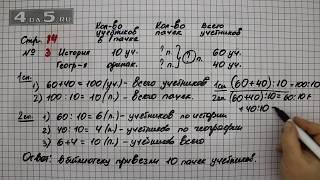 4 da 5 . ru
Стр. 14
Кол-во учебников в 1 пачке
Кол-во пачек
Всего учебников
№ 3 История 10 уч. ? ? 60 уч.
Геогр-я одинак. ? 40 уч.
1 сп.
1) 60+40 = 100 (уч.) - всего учебников
2) 100 : 10 = 10 (п.) - всего пачек.
1 сп. (60+40) : 10 = 100:10
2 сп. (60+40) : 10 = 60:10+
+40:10
2 сп.
1) 60 : 10 = 6 (п.) - учебников по истории
2) 40 : 10 = 4 (п.) - учебников по географии
3) 6+4 = 10 (п.) - учебников всего
Ответ: в библиотеку привезли 10 пачек учебников.